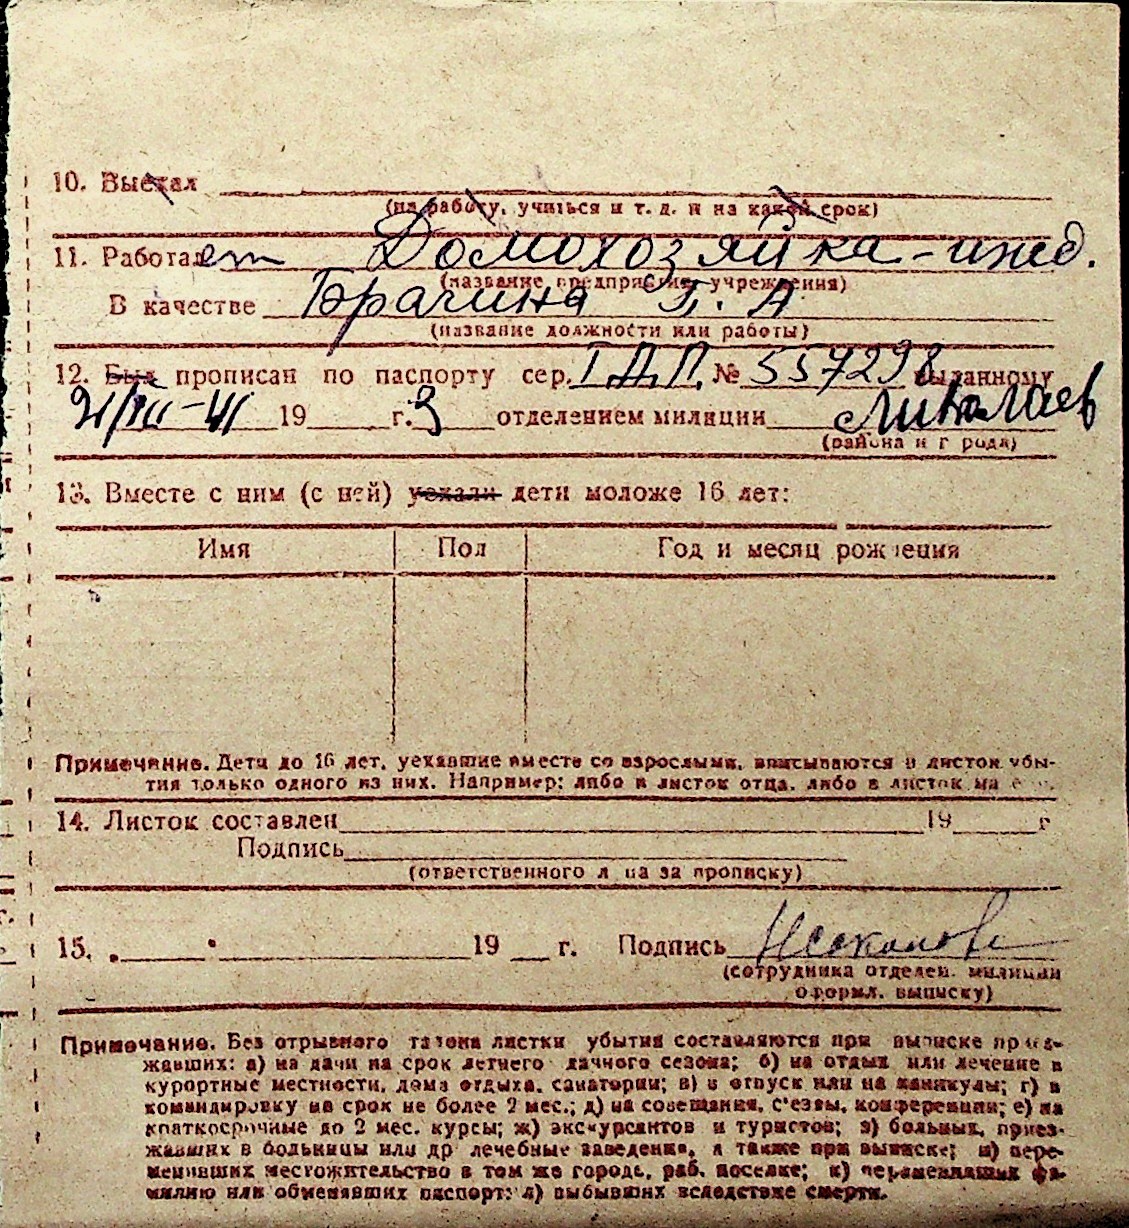 10. Выехал
(на работу, учиться и т. д. и на какой срок)
11. Работает Домохозяйка - ижд.
(название предприятия, учреждения)
В качестве Брагина Г. А
(название должности или работы)
12. Был прописан по паспорту сер. № 557298 выданному
21/XII-41 19 г. 3 отделением милиции Николаев
(района и города)
13. Вместе с ним (с ней) уехали дети моложе 16 лет:
Имя Пол Год и месяц рождения
Примечание. Дети до 16 лет, уехавшие вместе со взрослыми, вписываются в листок убы-
тия только одного из них. Например: либо в листок отца, либо в листок ма
14. Листок составлен 19 г
Подпись
(ответственного лица за прописку)
15. 19 г. Подпись
(сотрудника отделен. милиции
оформл. выписку)
Примечание. Без отрывного талона листки убытия составляются при выписке приез-
жавших: а) на дачи на срок летнего дачного сезона; б) на отдых или лечение в
курортные местности, дома отдыха, санатории; в) в отпуск или на каникулы; г) в
командировку на срок не более 2 мес.; д) на совещания, с'езды, конференции; е) на
краткосрочные до 2 мес. курсы; ж) экскурсантов и туристов; з) больных, приез-
жавших в больницы или др лечебные заведения, а также при выписке; и) пере-
менивших местожительство в том же городе, раб. поселке; к) переменивших фа-
милию или обменявших паспорт; л) выбывших вследствие смерти.